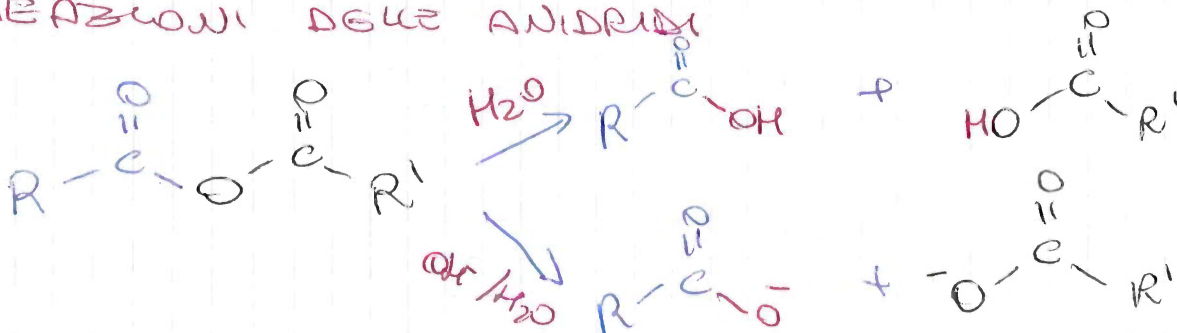 REAZIONI DELLE ANIDRIDI
R-C(=O)-O-C(=O)-R' H2O R-C(=O)-OH + HO-C(=O)-R'
OH-/H2O R-C(=O)-O- + -O-C(=O)-R'